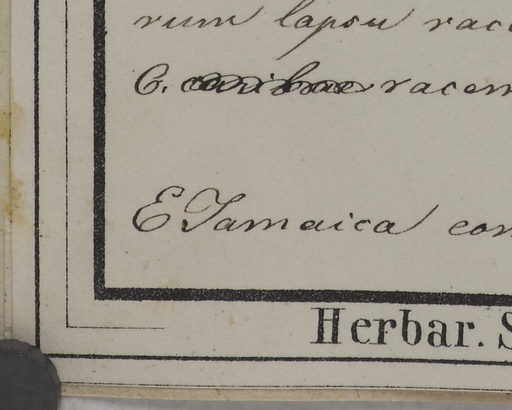 rum lapsu race
C. racem
E Jamaica con
Herbar. S